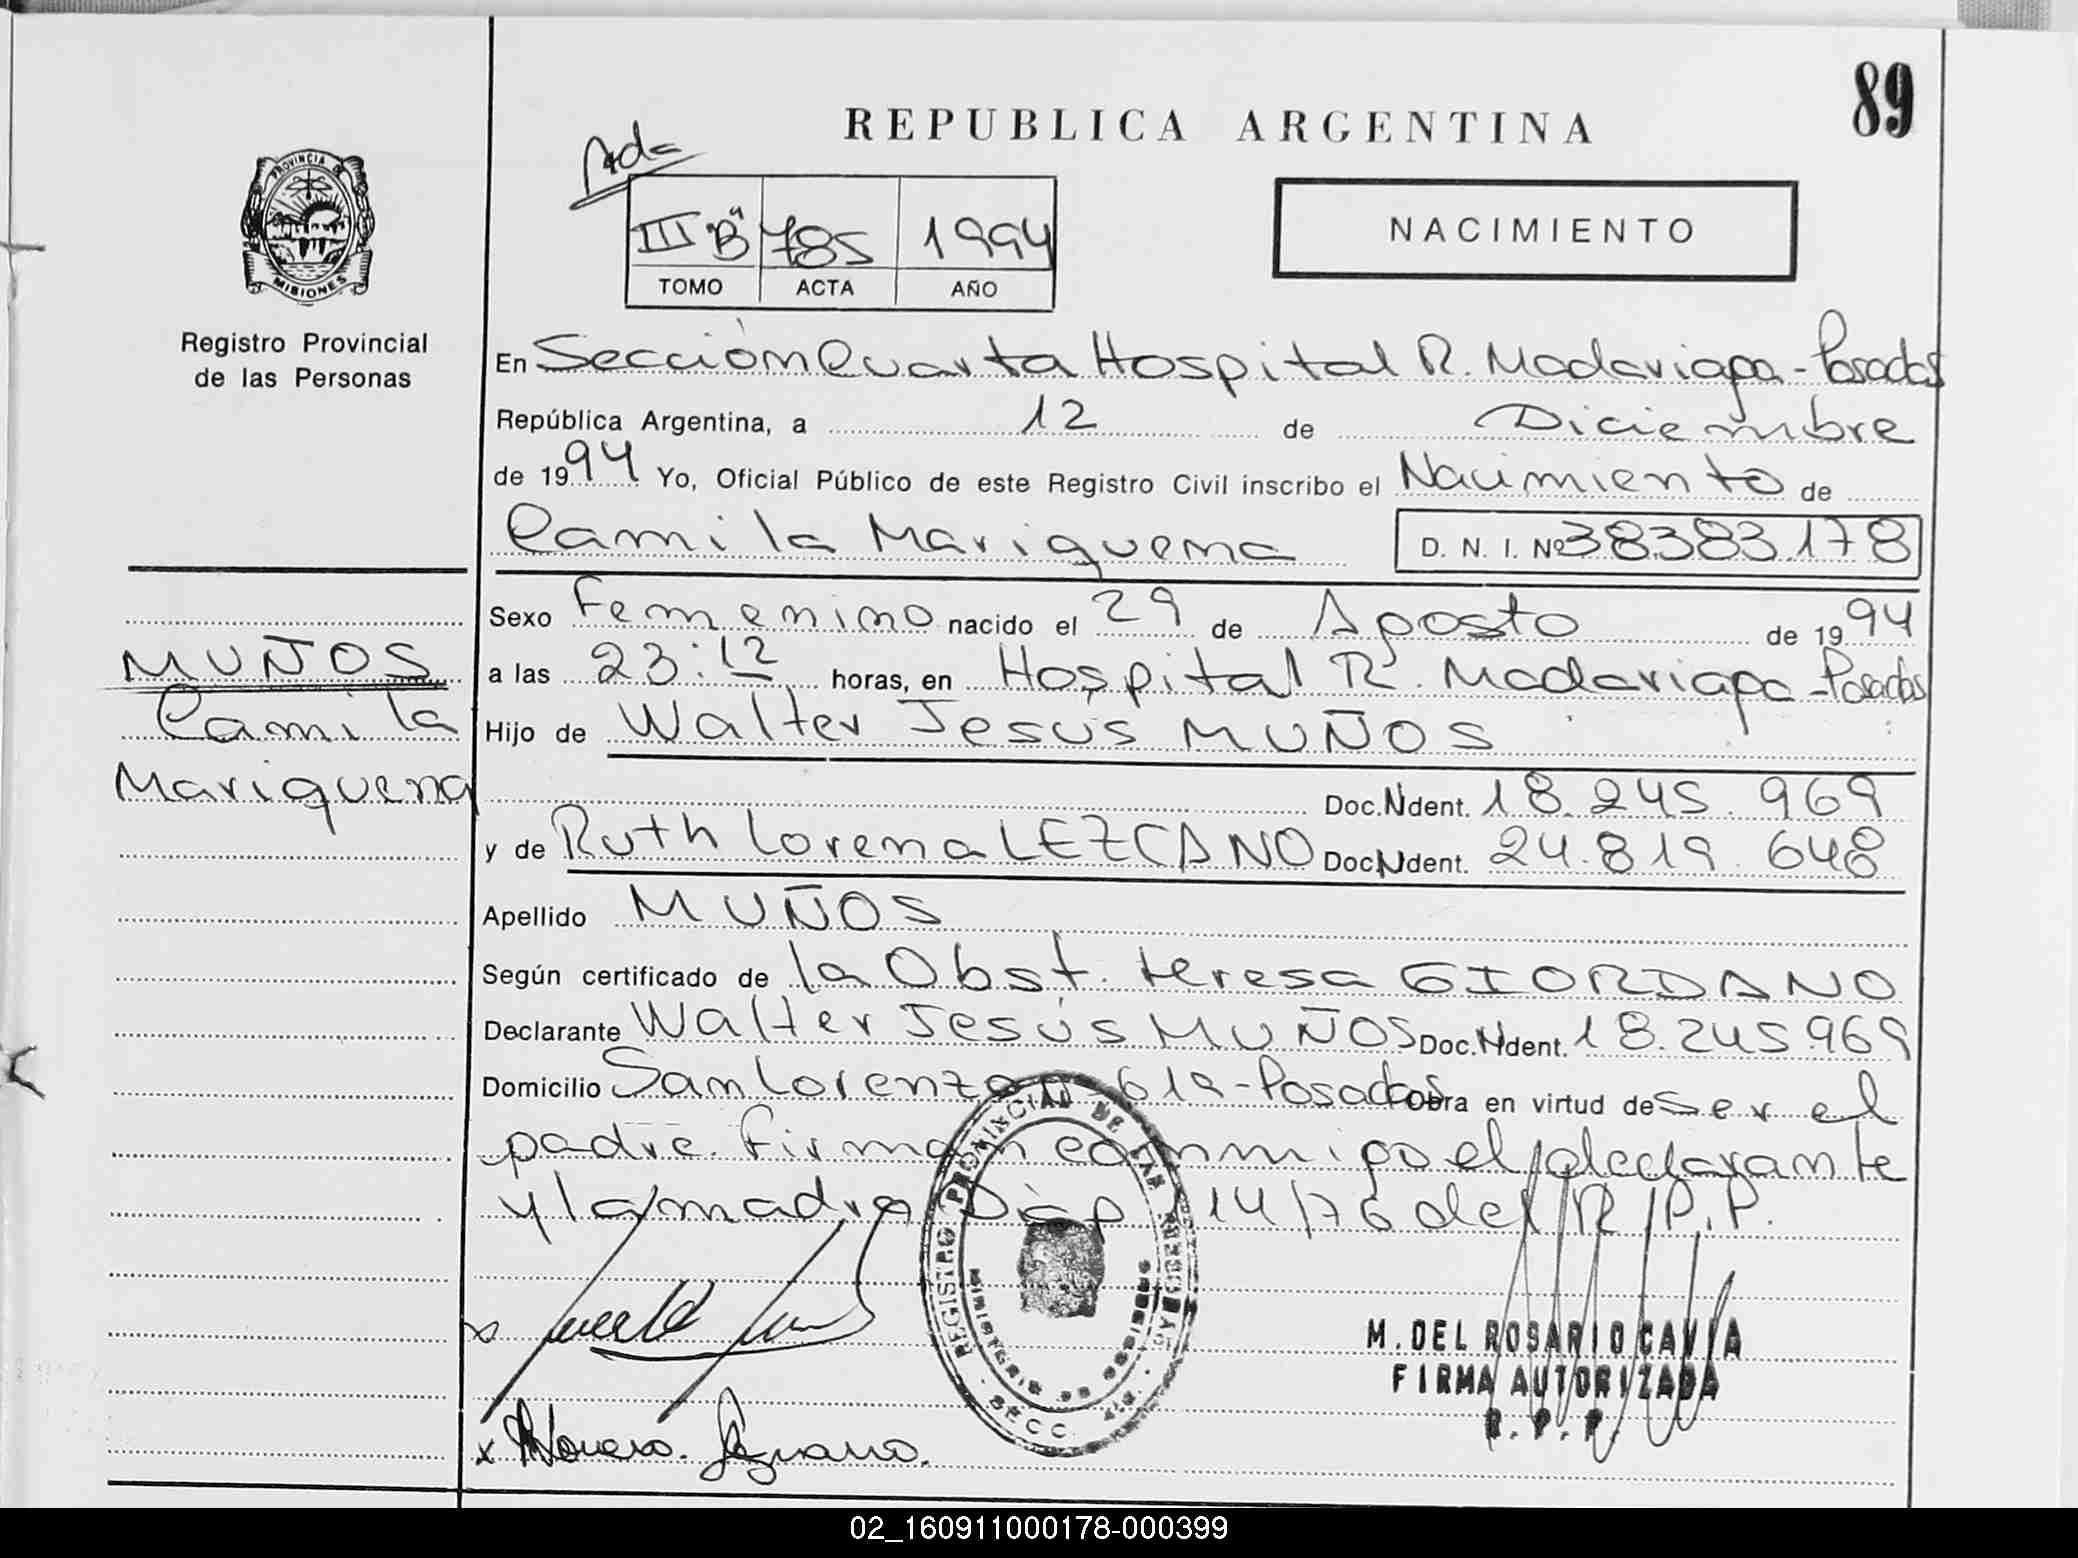 89
REPUBLICA ARGENTINA
PROVINCIA DE
MISIONES
Registro Provincial
de las Personas
III "B" 785 1994
TOMO ACTA AÑO
NACIMIENTO
En Sección Cuarta Hospital R. Madariaga - Posadas
República Argentina, a 12 de Diciembre
de 1994 Yo, Oficial Público de este Registro Civil inscribo el Nacimiento de
Camila Mariquena D. N. I. Nº 38.383.178
Sexo Femenino nacido el 29 de Agosto de 1994
a las 23:12 horas, en Hospital R. Madariaga - Posadas
MUÑOS
Camila
Mariquena
Hijo de Walter Jesus MUÑOS
Doc. Ident. 18.245.969
y de Ruth Lorena LEZCANO Doc. Ident. 24.819.648
Apellido MUÑOS
Según certificado de la Obst. teresa GIORDANO
Declarante Walter Jesús MUÑOS Doc. Ident. 18.245969
Domicilio San Lorenzo 619 - Posadas Obra en virtud de ser el
padre. Firman conmigo el declarante
y la madre Disp 14/76 del R.P.P.
REGISTRO PROVINCIAL DE LAS PERSONAS
MINISTERIO DE GOBIERNO
SECC.
M. DEL ROSARIO CAVIA
FIRMA AUTORIZADA
R. P. P.
02_160911000178-000399